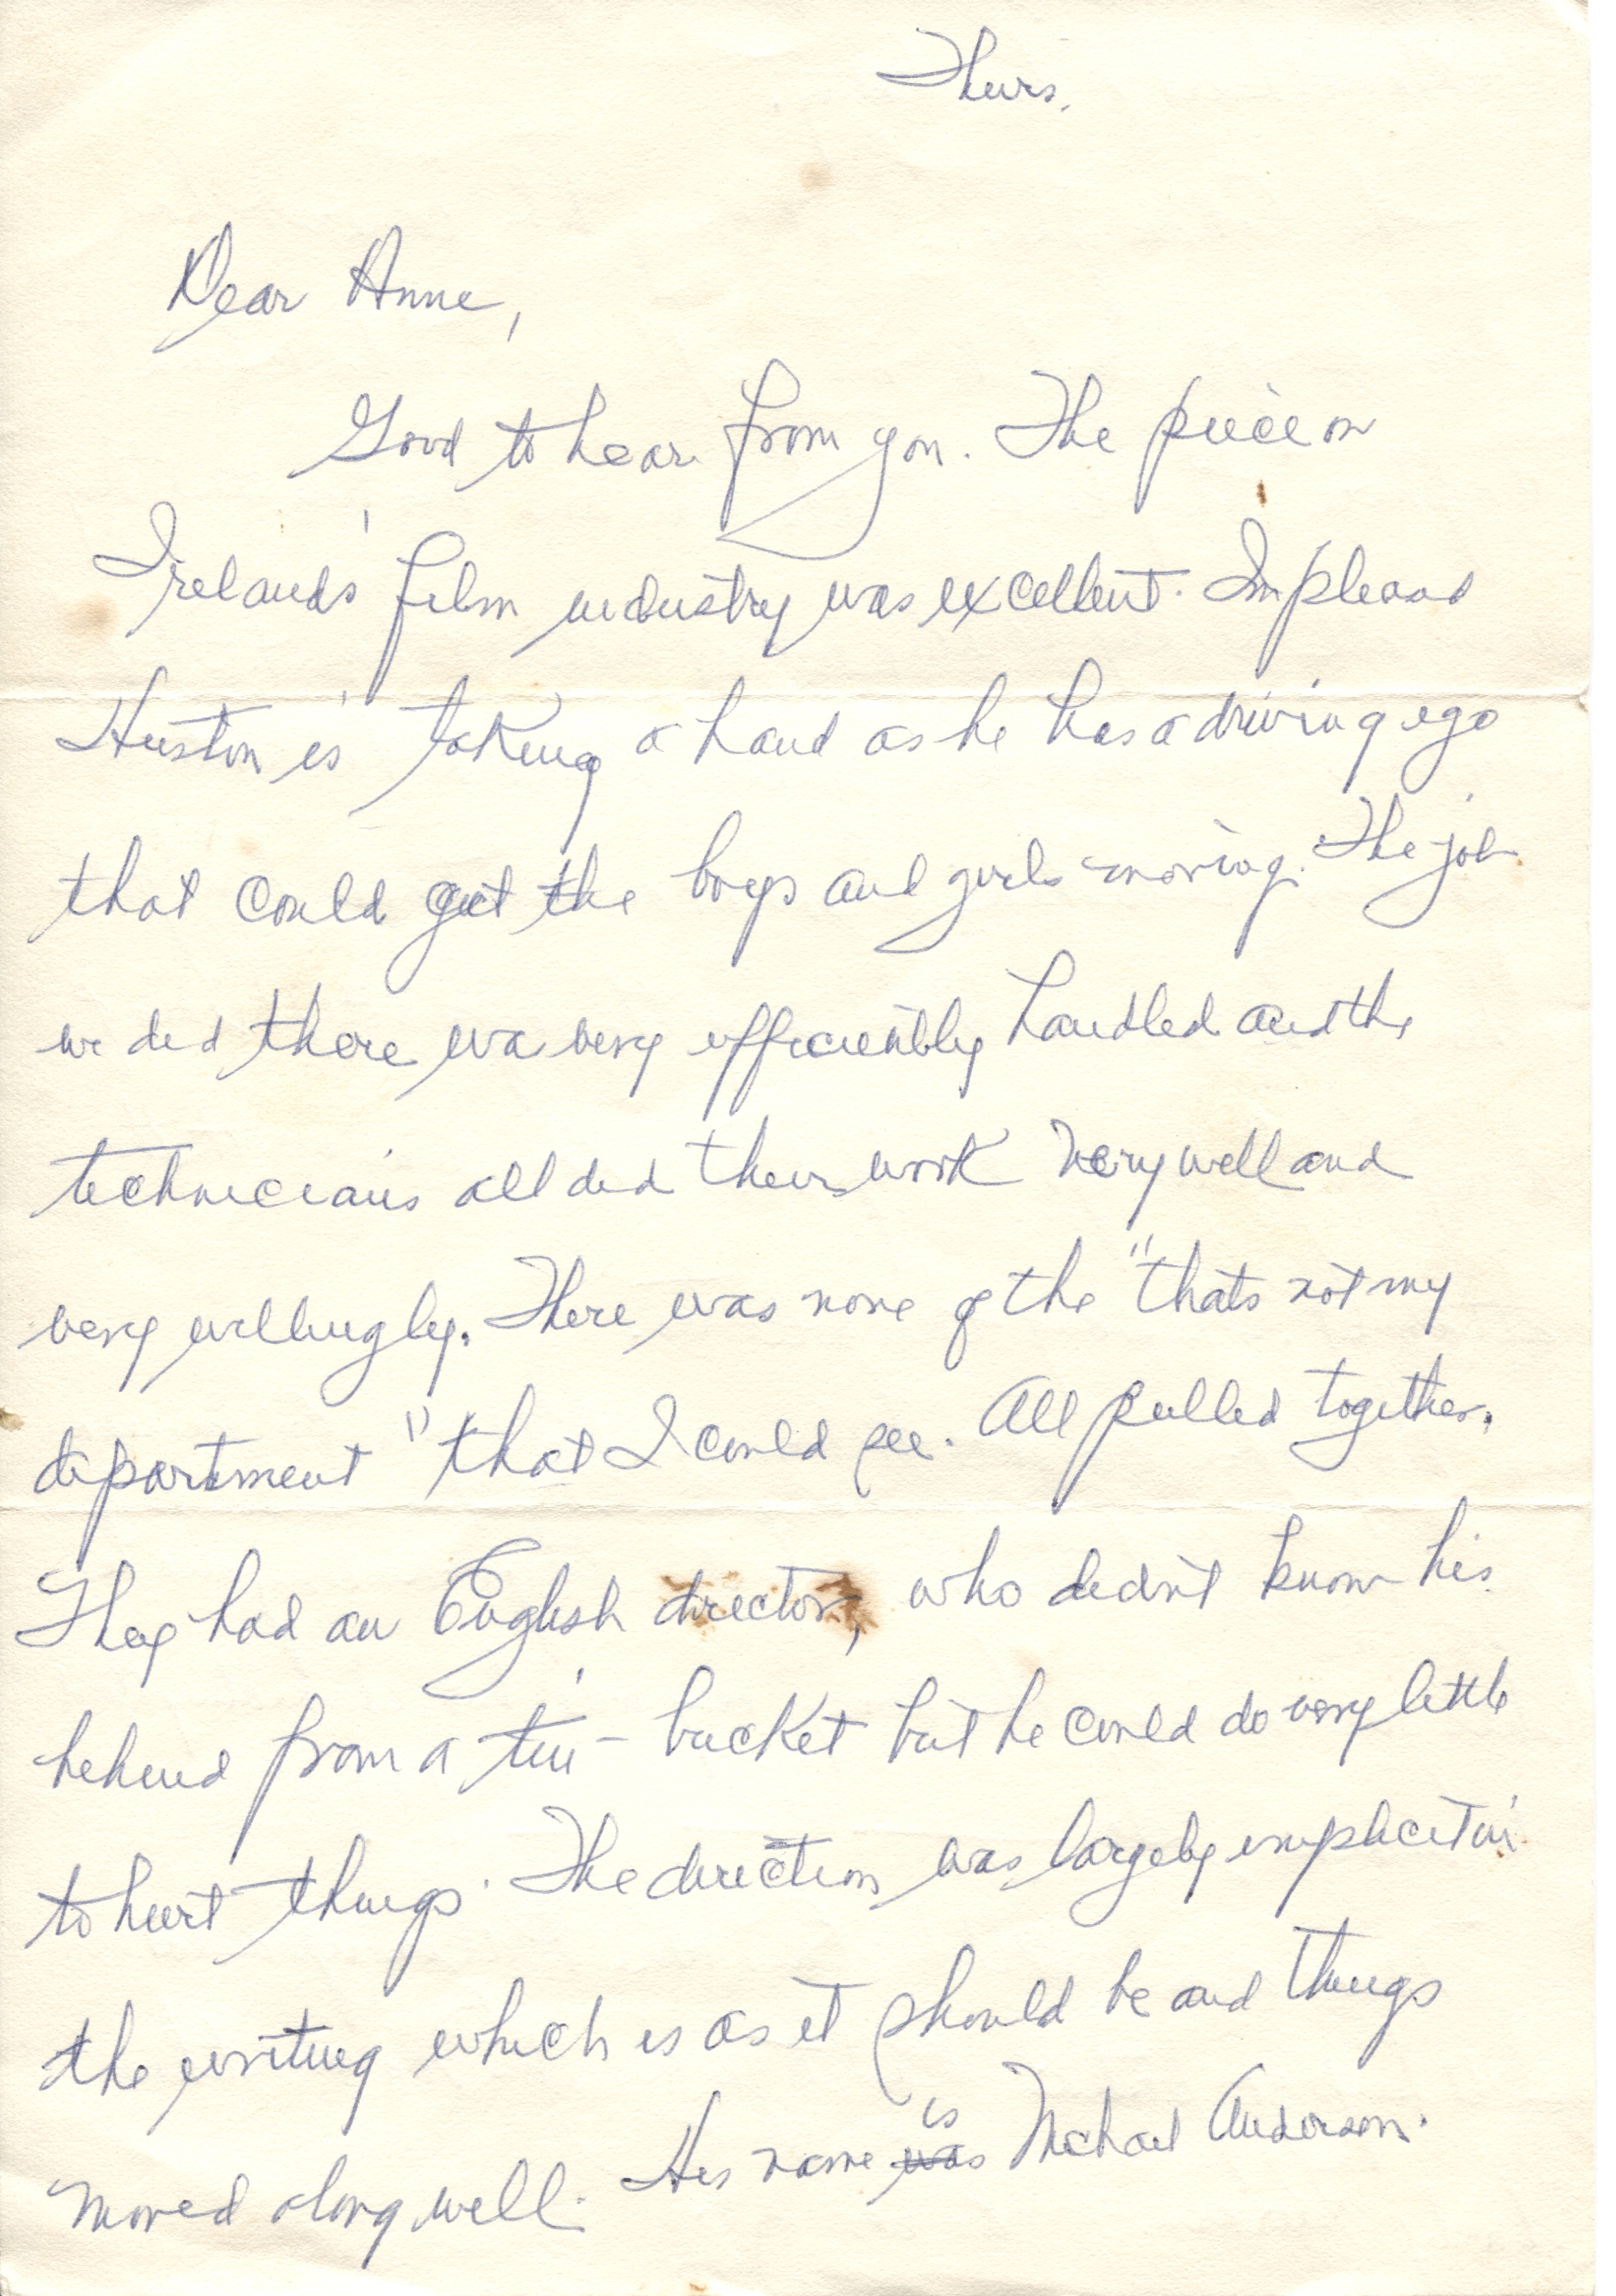 Thurs.
Dear Anne,
Good to hear from you. The piece on
Ireland's film industry was excellent. Im pleased
Huston is taking a hand as he has a driving ego
that could get the boys and girls moving. The job
we did there wa very efficiently handled and the
technicians all did their work very well and
very willingly. There was none of the "thats not my
department" that I could see. All pulled together.
They had an English director, who didn't know his
behind from a tin-bucket but he could do very little
to hurt things. The direction was largely implicit in
the writing which is as it should be and things
moved along well. His name ~~was~~ is Michael Anderson.